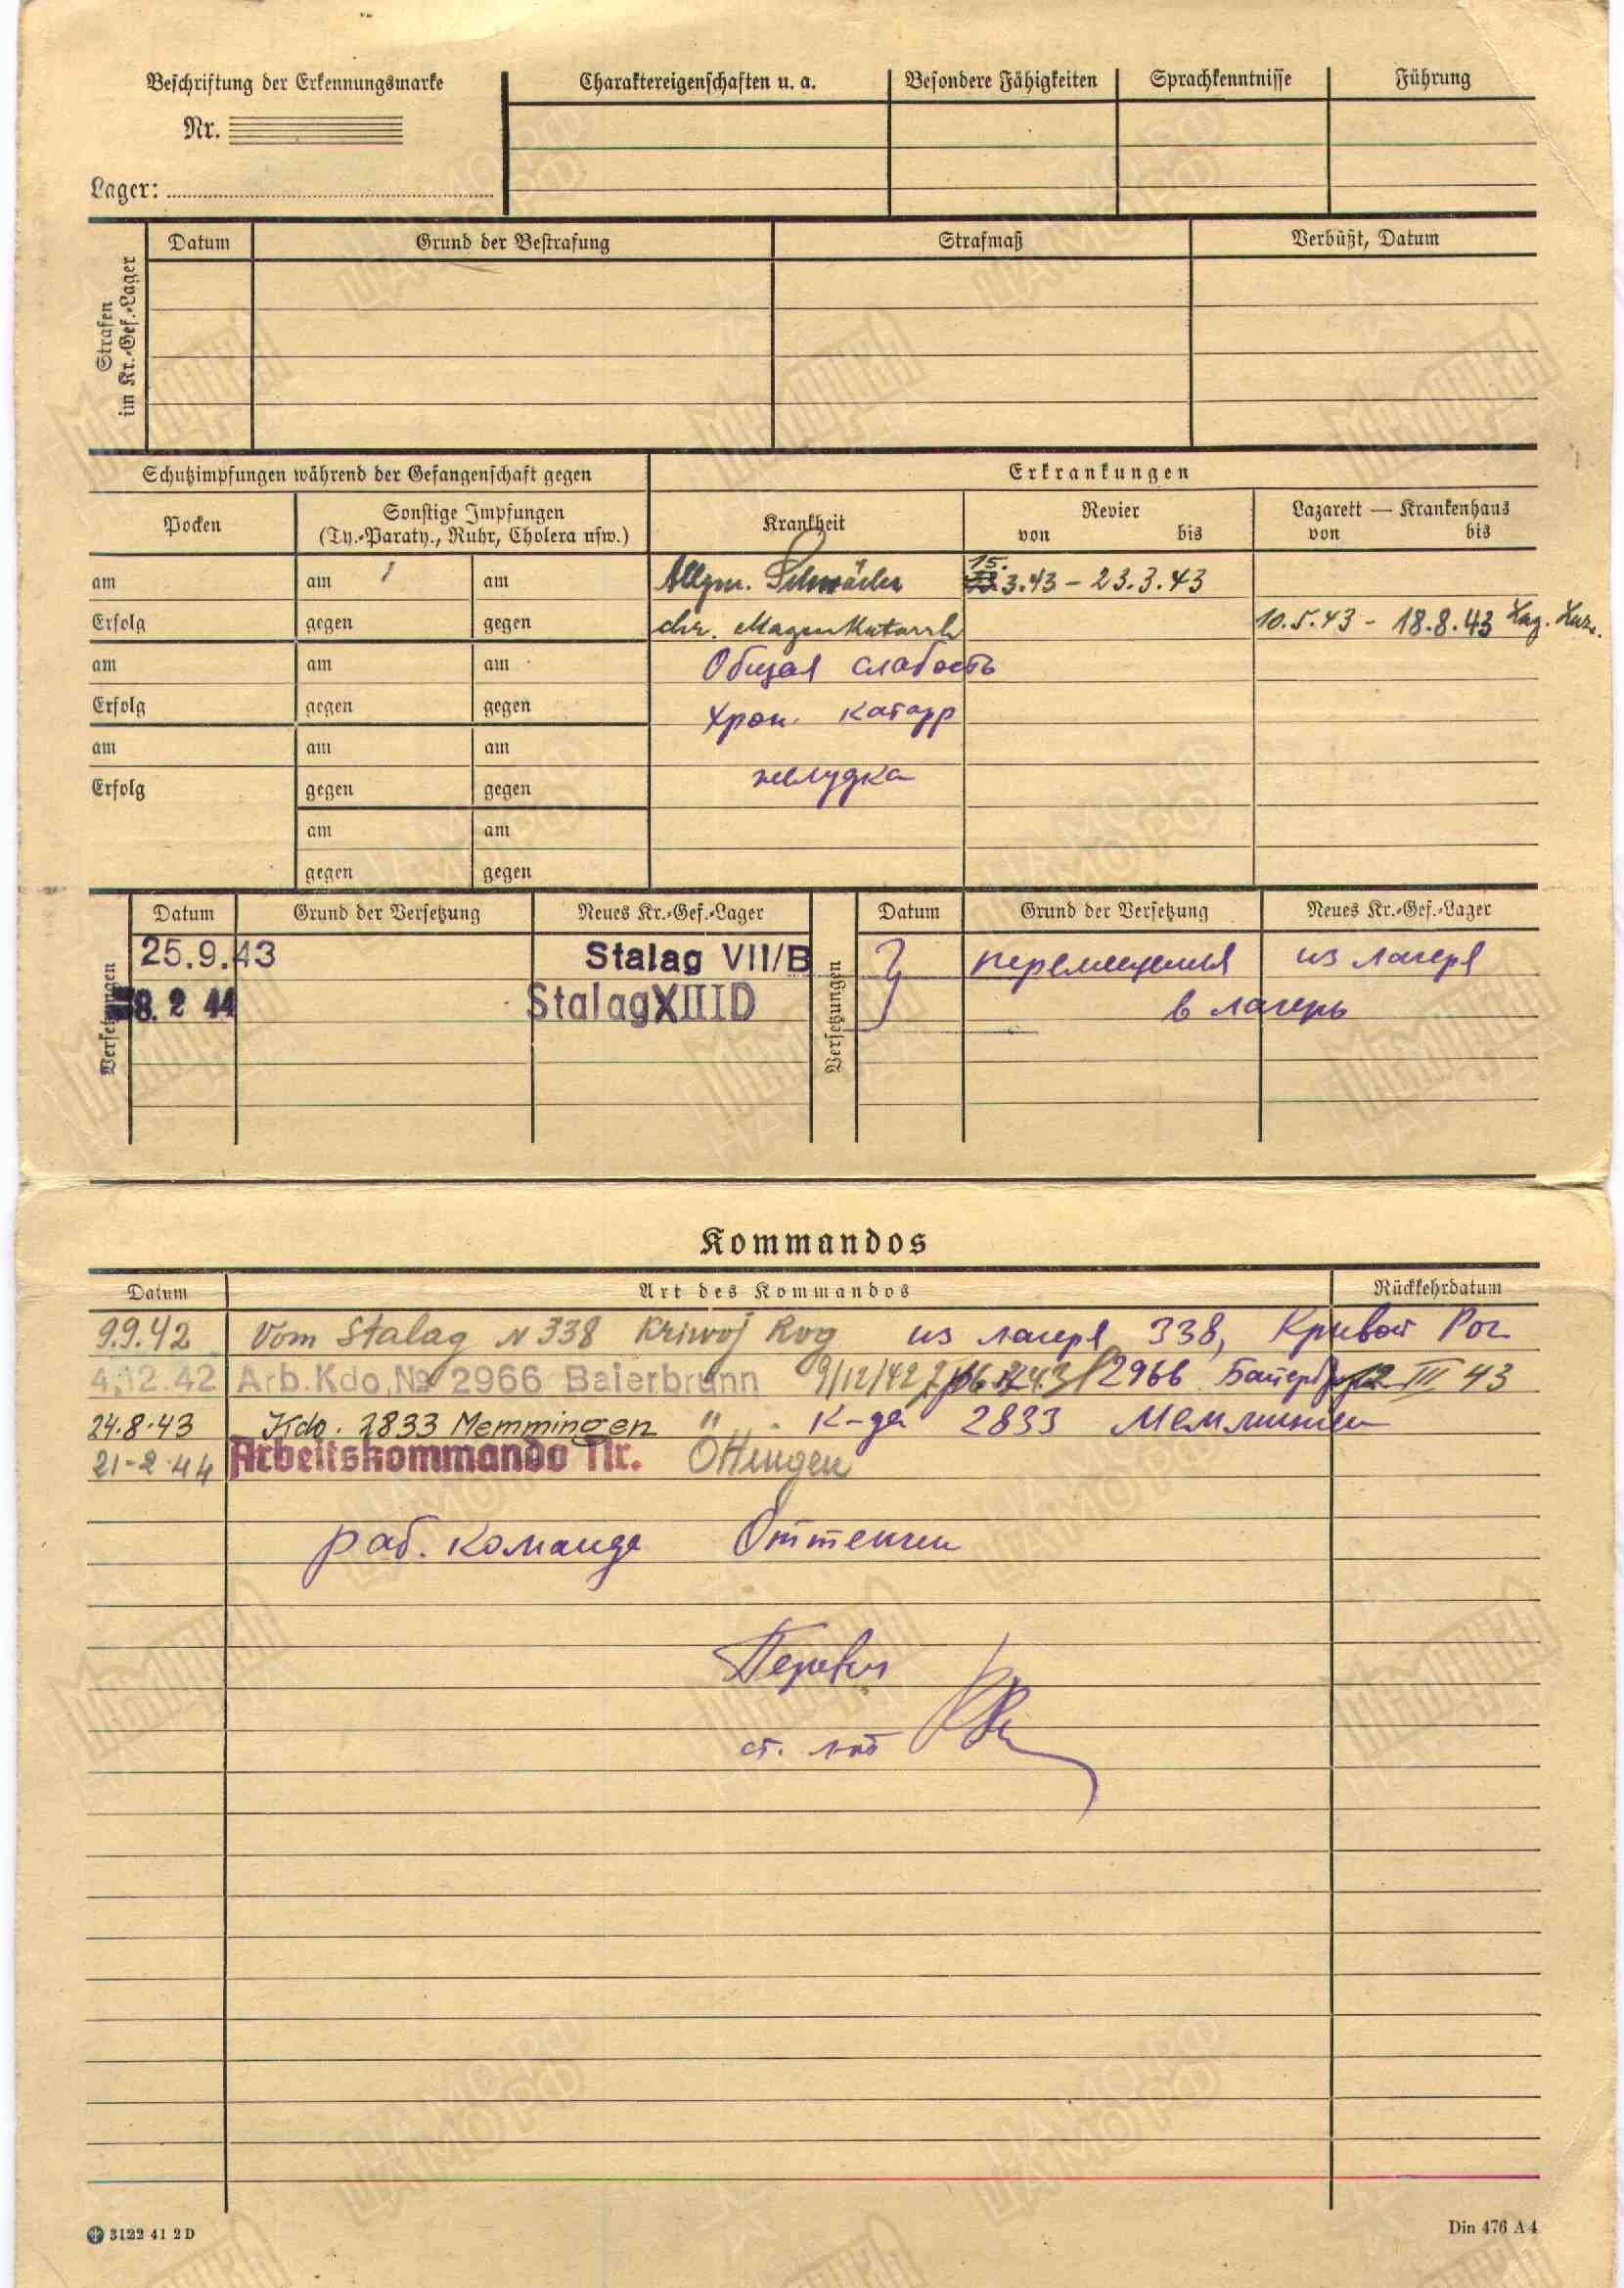 Beschriftung der Erkennungsmarke
Nr.
Lager:
Charaktereigenschaften u. a.
Besondere Fähigkeiten
Sprachkenntnisse
Führung
Strafen
im Kr.-Gef.-Lager
Datum
Grund der Bestrafung
Strafmaß
Verbüßt, Datum
Schutzimpfungen während der Gefangenschaft gegen
Erkrankungen
Pocken
Sonstige Impfungen
(Ty.-Paraty., Ruhr, Cholera usw.)
Krankheit
Revier
von bis
Lazarett — Krankenhaus
von bis
am am am Allgm. Schwäche 15. 3.43 - 23.3.43
Erfolg gegen gegen chr. Magenkatarrh 10.5.43 - 18.8.43
am am am Общая слабость
Erfolg gegen gegen Хрон. катарр
am am am
Erfolg gegen gegen желудка
am am
gegen gegen
Versetzungen
Datum Grund der Versetzung Neues Kr.-Gef.-Lager
25.9.43 Stalag VII/B
8.2 44 Stalag XIII D
Versetzungen
Datum Grund der Versetzung Neues Kr.-Gef.-Lager
перемещения из лагеря
в лагерь
Kommandos
Datum Art des Kommandos Rückkehrdatum
9.9.42 Vom Stalag N 338 Kriwoj Rog из лагеря 338, Кривой Рог
4.12.42 Arb.Kdo.№ 2966 Baierbrunn 9/12/42 2966 III 43
24.8.43 Kdo. 2833 Memmingen " К-да 2833 Мемминген
21-2-44 Arbeitskommando Nr. Öttingen
раб. команда Оттенген
Перевел
ст. л-т
3122 41 2 D
Din 476 A 4